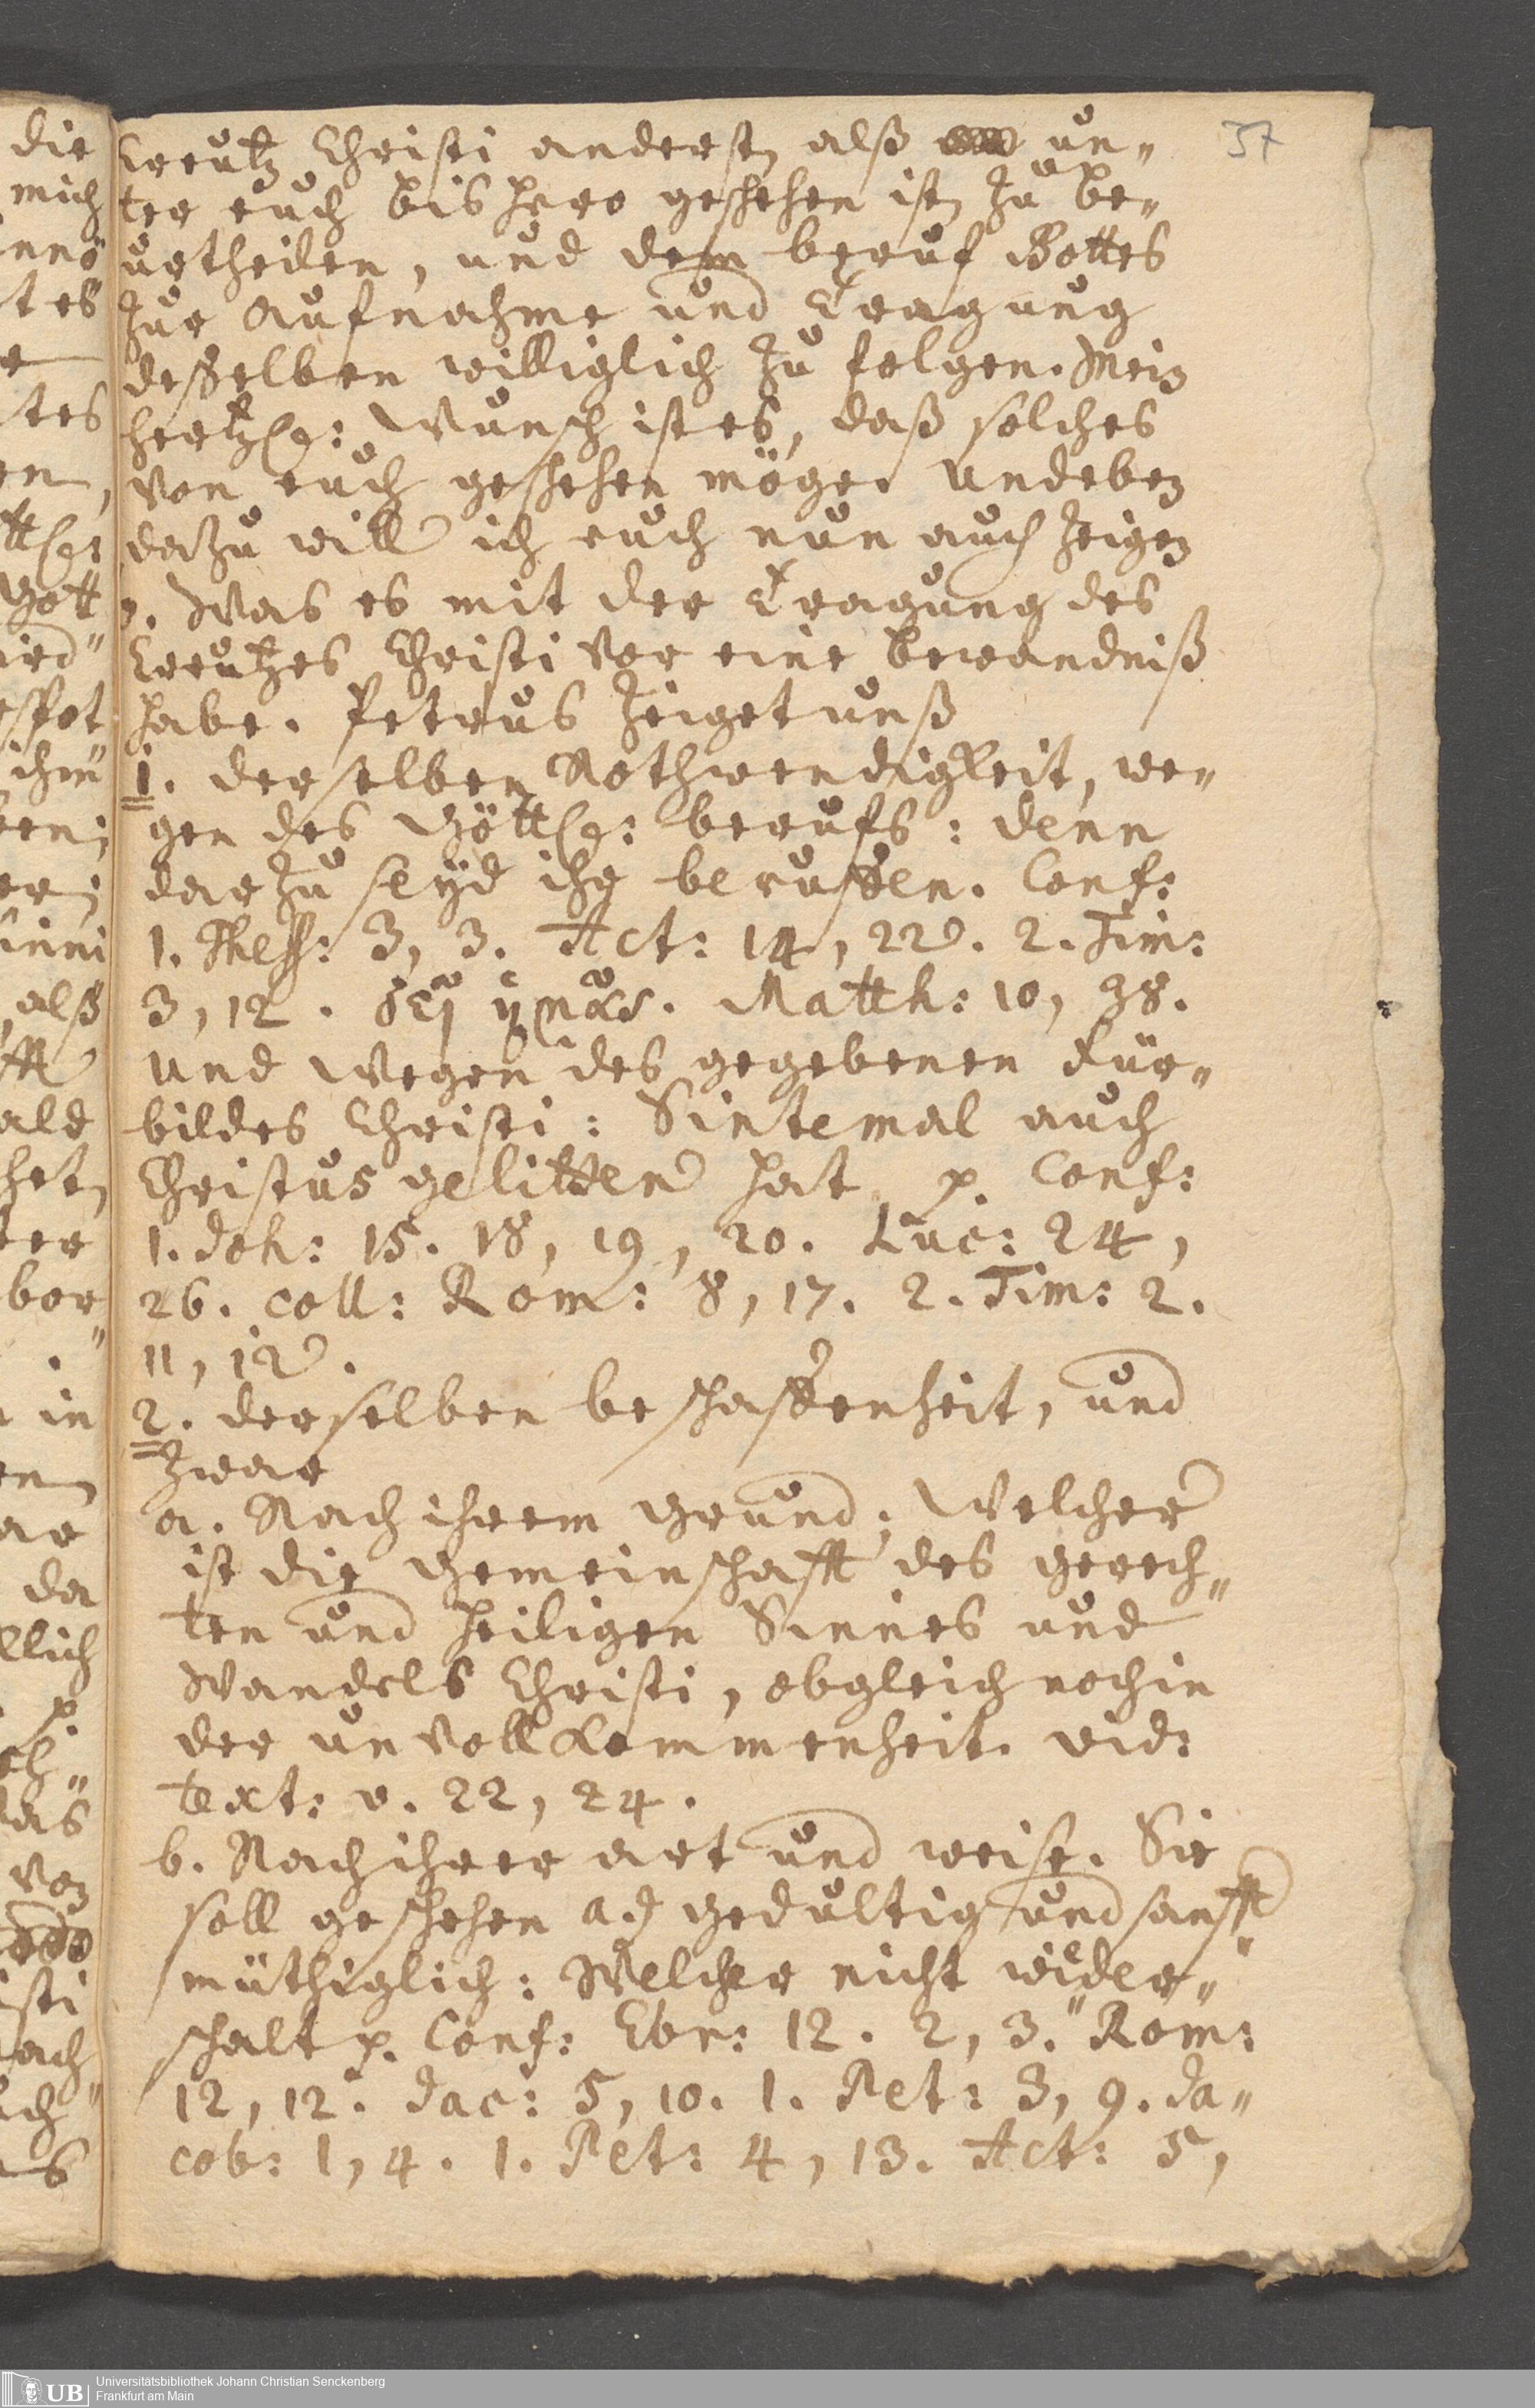 37
Creutz Christi anderst, alß un„
ter euch bishero geschehen ist, zu be„
urtheilen, und dem beruf Gottes
zur aufnahme und Tragung
deßelben williglich zu folgen. Mein
hertzl: Wunsch ist es, daß solches
von euch geschehen möge. Und eben
dazu will ich euch nun auch zeigen
2. Was es mit der Tragung des
Creutzes Christi vor eine bewandniß
habe. Petrus zeiget unß
1. derselben Nothwendigkeit, we„
gen des Göttl: berufs: denn
darzu seyd ihr beruffen. Conf:
1. Thess: 3, 3. Act: 14, 22. 2. Tim:
3, 12. δεῖ ἡμᾶς. Matth: 10, 38.
und wegen des gegebenen Für„
bildes Christi: Sintemal auch
Christus gelitten hat p. Conf:
1. Joh: 15. 18, 19, 20. Luc: 24,
26. coll: Rom: 8, 17. 2. Tim: 2.
11, 12.
2. derselben beschaffenheit, und
zwar
a. Nach ihrem Grund; Welcher
ist die Gemeinschafft des gerech„
ten und heiligen Sinnes und
Wandels Christi, obgleich noch in
der unvollkommenheit. vid:
text: v. 22, 24.
b. Nach ihrer art und weise. Sie
soll geschehen a.) gedultig und sanfft„
müthiglich: Welcher nicht wieder„
schalt p. Conf: Ebr: 12. 2, 3. Rom:
12, 12. Jac: 5, 10. 1. Pet: 3, 9. Ja„
cob: 1, 4. 1. Pet: 4, 13. Act: 5,
UB Universitätsbibliothek Johann Christian Senckenberg
Frankfurt am Main